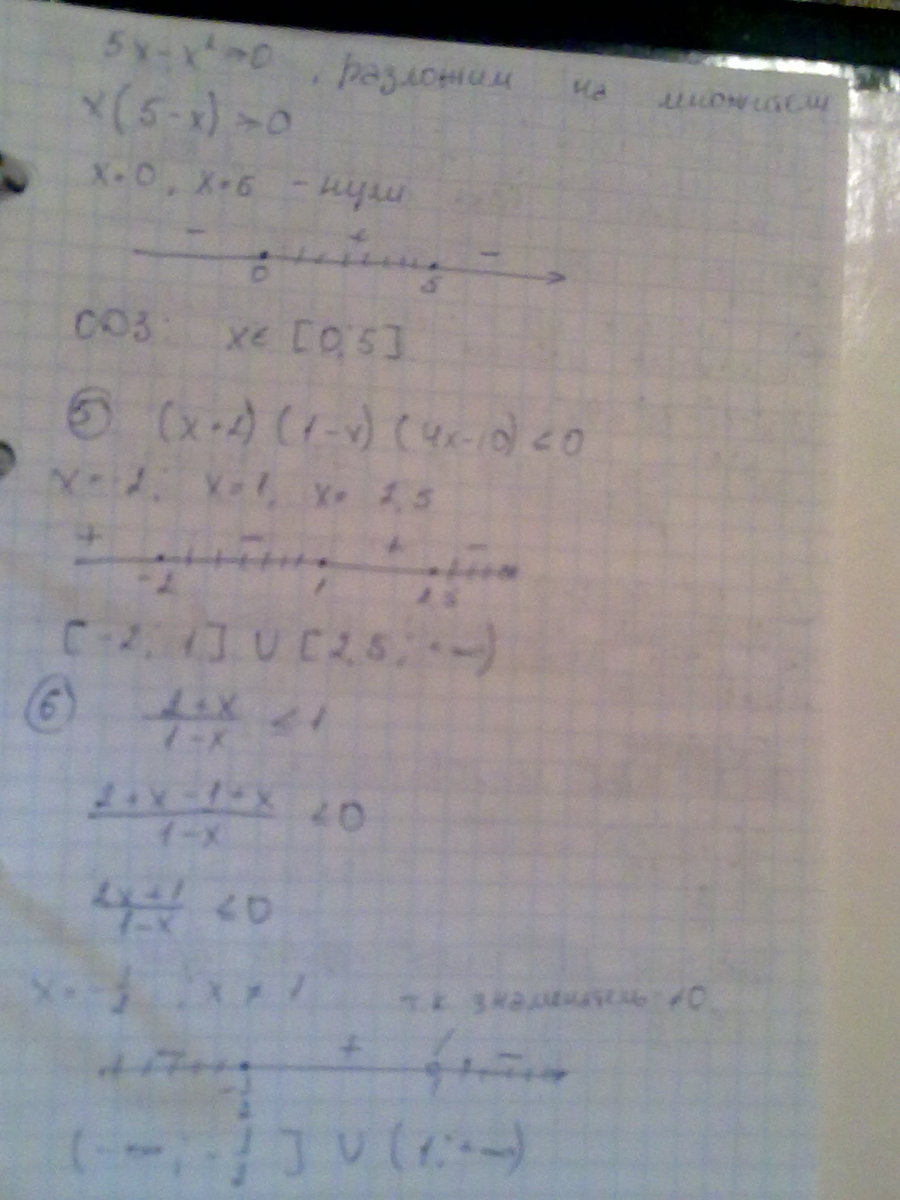 5x-x²≥0, разложим на множители
x(5-x)≥0
x=0, x=5 - нули
- + -
0 5
ООЗ: x∈[0;5]
⑤ (x+2)(1-x)(4x-10)≤0
x=-2; x=1, x=2,5
+ - + -
-2 1 2,5
[-2; 1]∪[2,5; +∞)
⑥ (2+x)/(1-x) ≤1
(2+x-1+x)/(1-x) ≤0
(2x+1)/(1-x) ≤0
x=-1/2; x≠1 т.к знаменатель ≠0
- + -
-1/2 1
(-∞; -1/2]∪(1;+∞)